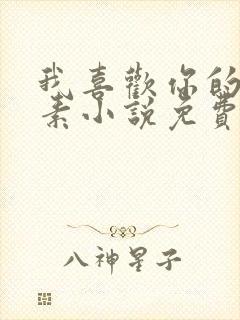 我喜歡你的
素小說免費
八神星子